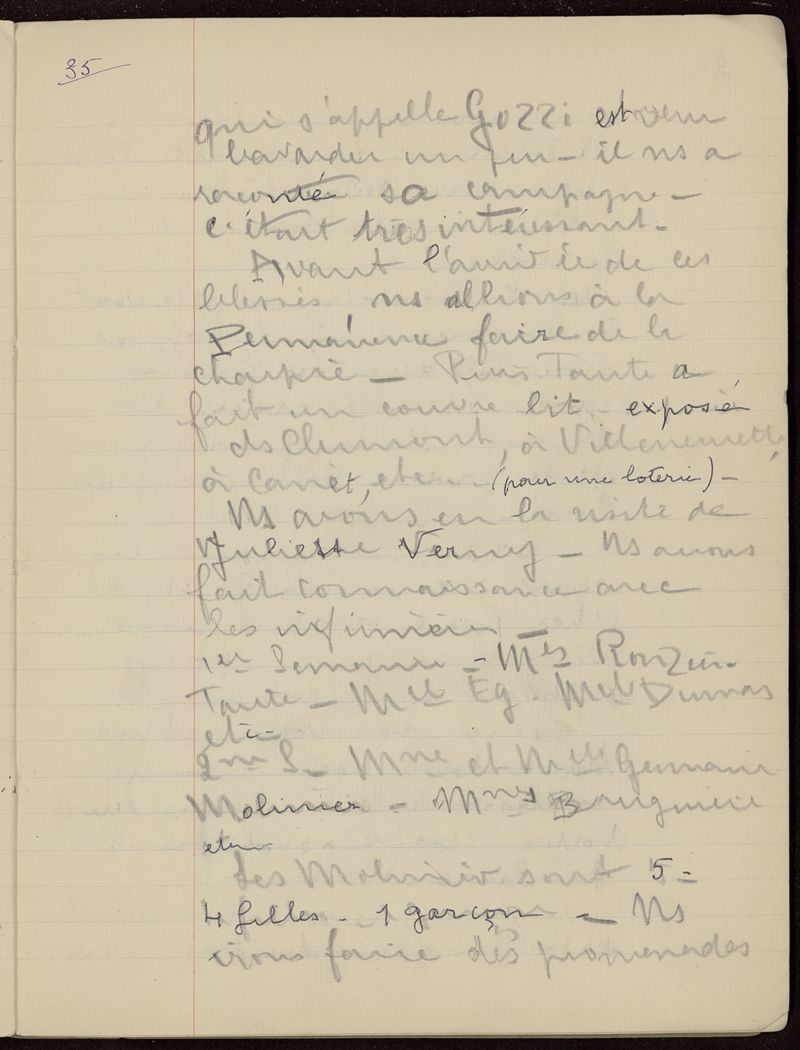 35
qui s'appelle Gozzi est venu
bavarder un peu - il ns a
raconté sa campagne -
c'était très intéressant.
Avant l'arrivée de ces
blessés ns allions à la
Permanence faire de la
charpie - Puis Tante a
fait un couvre lit - exposé
ds Clermont, à Villeneuvette
à Canet, etc. (pour une loterie) -
Ns avons eu la visite de
Juliette Verny - Ns avons
fait connaissance avec
les infirmières -
1er Semaine - Mes Ronzier.
Tante - Melle Eg. Melle Dumas
etc -
2me S - Mme et Melle Germaine
Molinier - Mmes Bruguière
etc
Les Molinier sont 5 -
4 filles - 1 garçon - Ns
irons faire des promenades